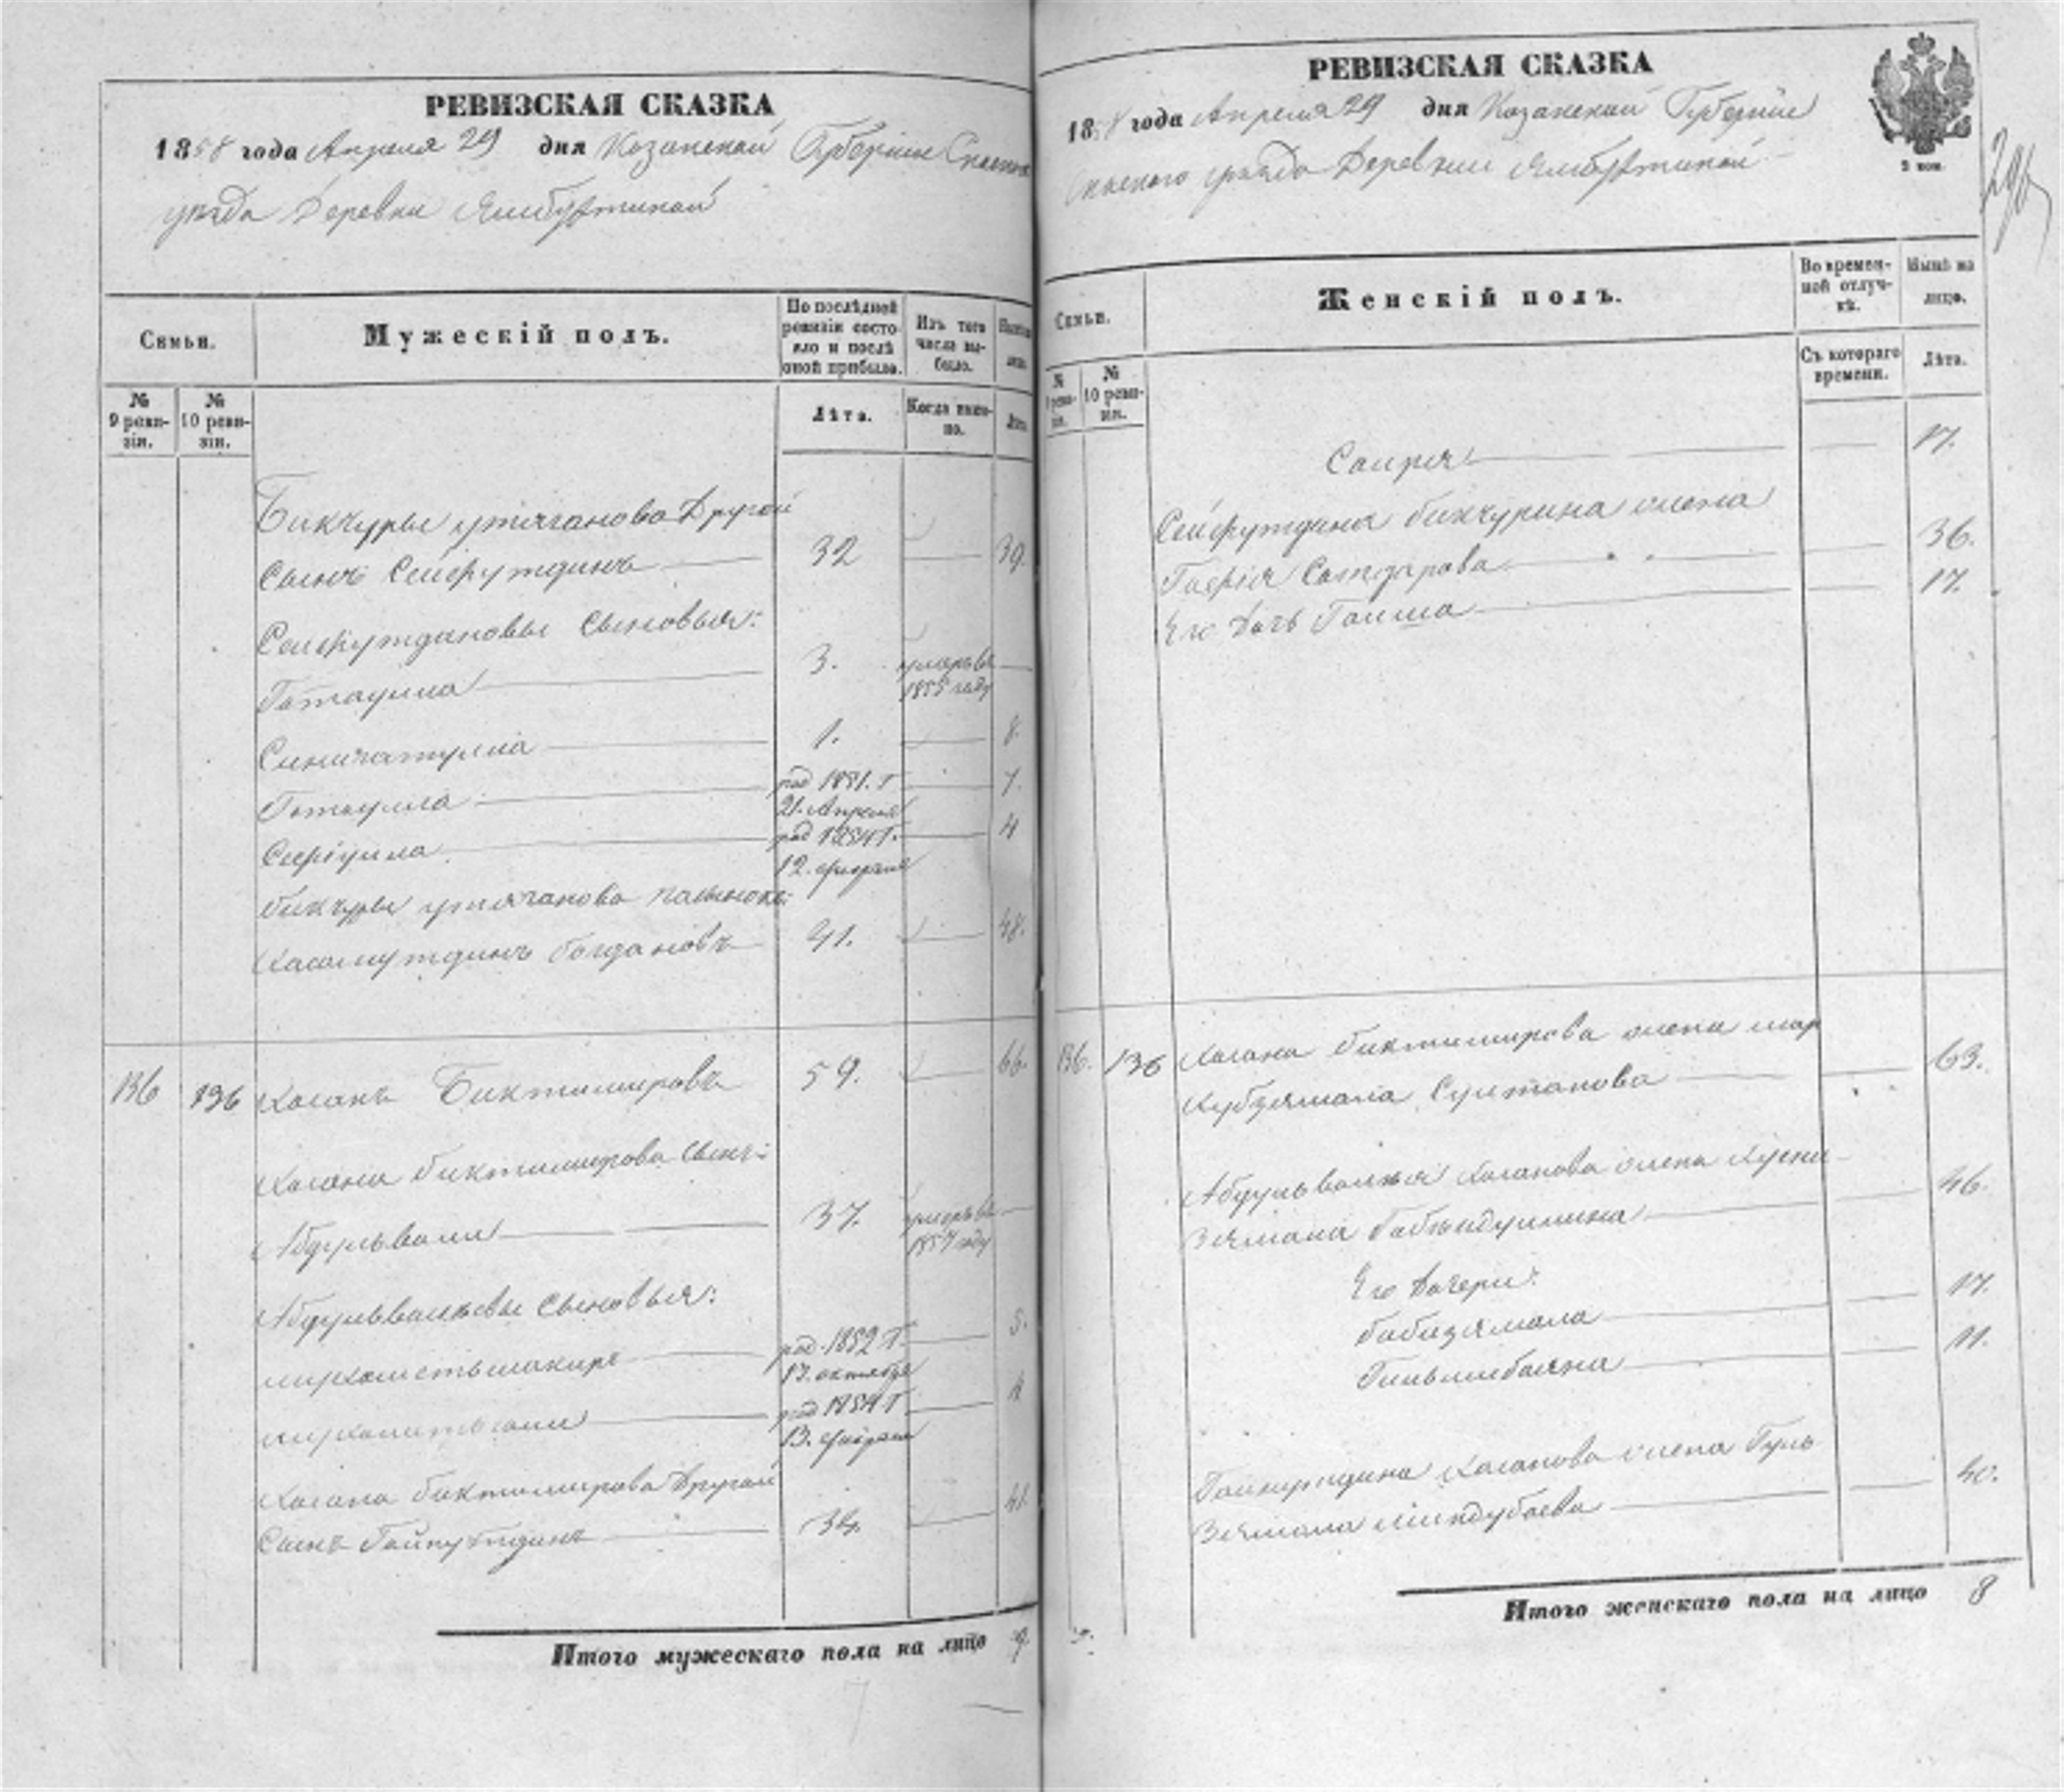 РЕВИЗСКАЯ СКАЗКА
1858 года Апреля 29 дня Казанской Губернiи Спаскаго
уѣзда Деревни Ямбухтиной
Семьи.
Мужескій полъ.
По послѣдней ревизіи состояло и послѣ оной прибыло.
Изъ того числа выбыло.
Нынѣ на лицо.
№ 9 ревизіи.
№ 10 ревизіи.
Лѣта.
Когда именно.
Лѣта
Бикчуры утяганова Другой
Сынъ Сейфутдинъ 32 39.
Сейфутдиновы Сыновья:
Гатаулла 3. умеръ въ 1855 году
1. 8.
Гатаулла род 1851. Г 21. Апреля 7.
Сафіулла род 1854 Г. 12. февраля 4
бикчуры утяганова пасынокъ:
Каламутдинъ богдановъ 41. 48.
136 136 Хасанъ Биктимировъ 59. 66.
Хасана биктимирова Сынъ:
Абдулвали 37. умеръ въ 1857 году
Абдулвалѣевы Сыновья:
мухаметьшакиръ род 1852 Г. 13. октября 5.
род 1854 Г 13. февраля 4
Хасана биктимирова Другой
Сынъ Гайнутдинъ 34. 41
Итого мужескаго пола на лицо 9.
РЕВИЗСКАЯ СКАЗКА
1858 года Апреля 29 дня Казанской Губернiи
Спаскаго уѣзда Деревни Ямбухтиной
2 коп.
296
Семьи.
Женскій полъ.
Во временной отлучкѣ.
Нынѣ на лицо.
№ 9 ревизіи.
№ 10 ревизіи.
Съ котораго времени.
Лѣта.
17.
Сейфутдина бикчурина жена
Гафія Сатдарова 36.
Его дочь Гайша 17.
136. 136 Хасана биктимирова жена мар
Султанова 63.
Абдулвалѣя Хасанова жена Хусни-
зямала Габъидуллина 46.
Его дочери:
бибизямала 17.
11.
Гайнутдина Хасанова жена Гуль
Зямала миндубаева 40.
Итого женскаго пола на лицо 8